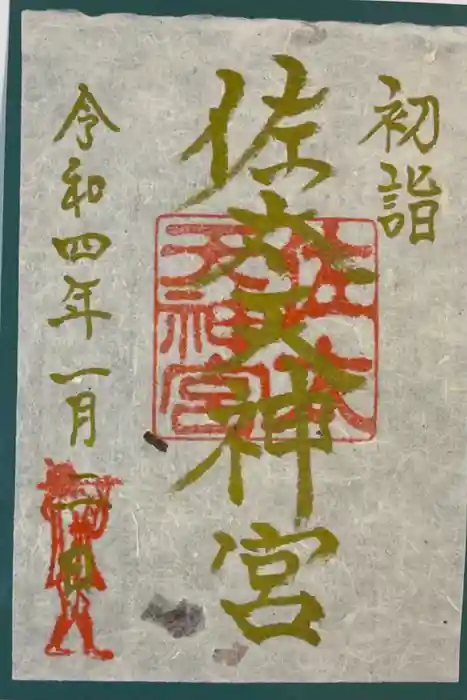 初詣
佐太天神宮
佐太
天神宮
令和四年一月二日